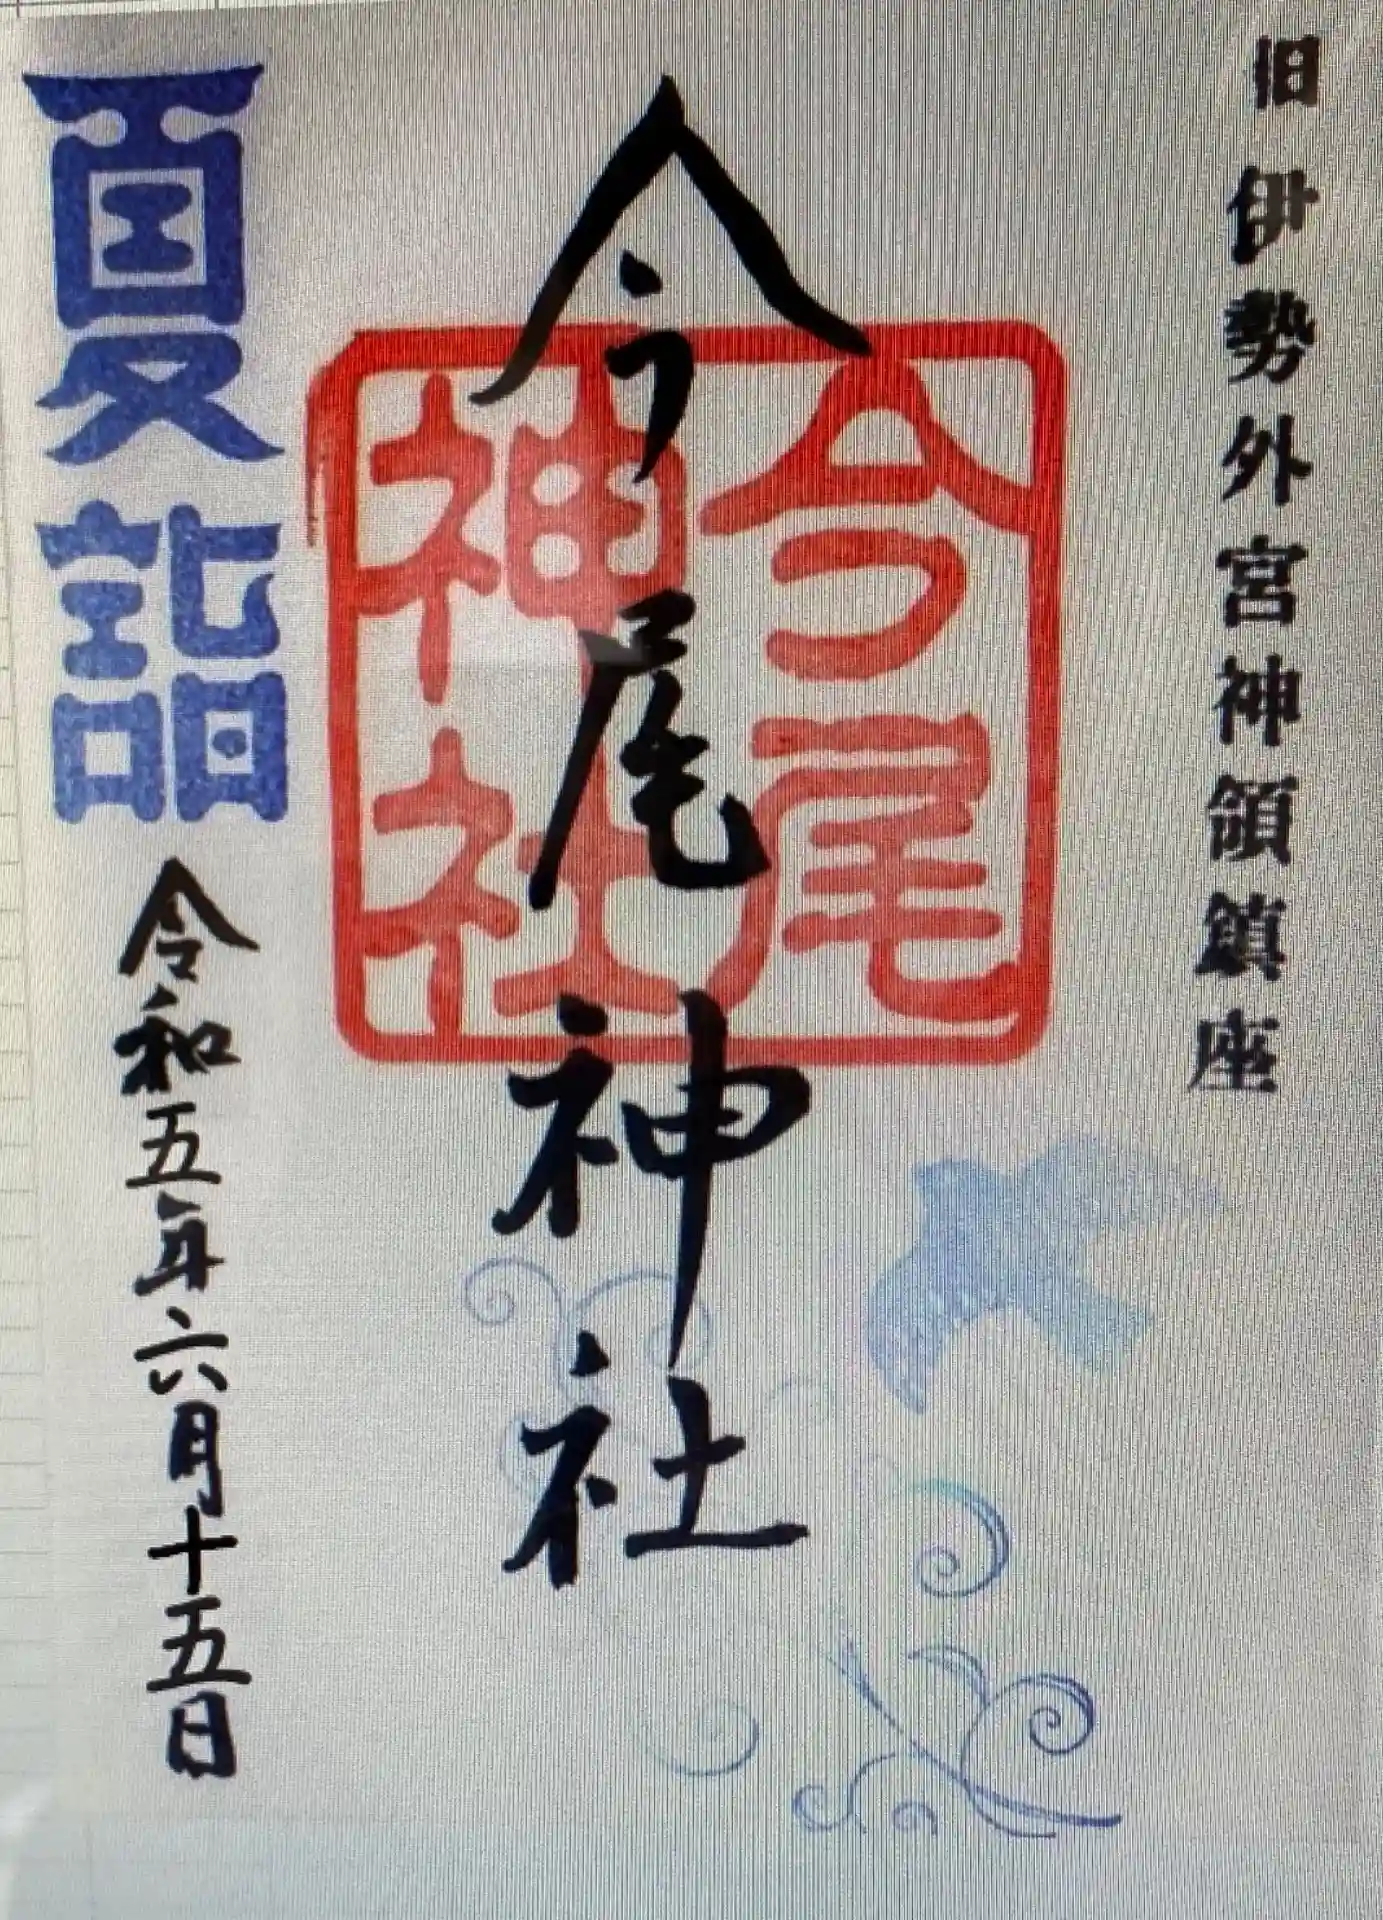 旧伊勢外宮神領鎮座
今尾神社
今尾
神社
夏詣
令和五年六月十五日